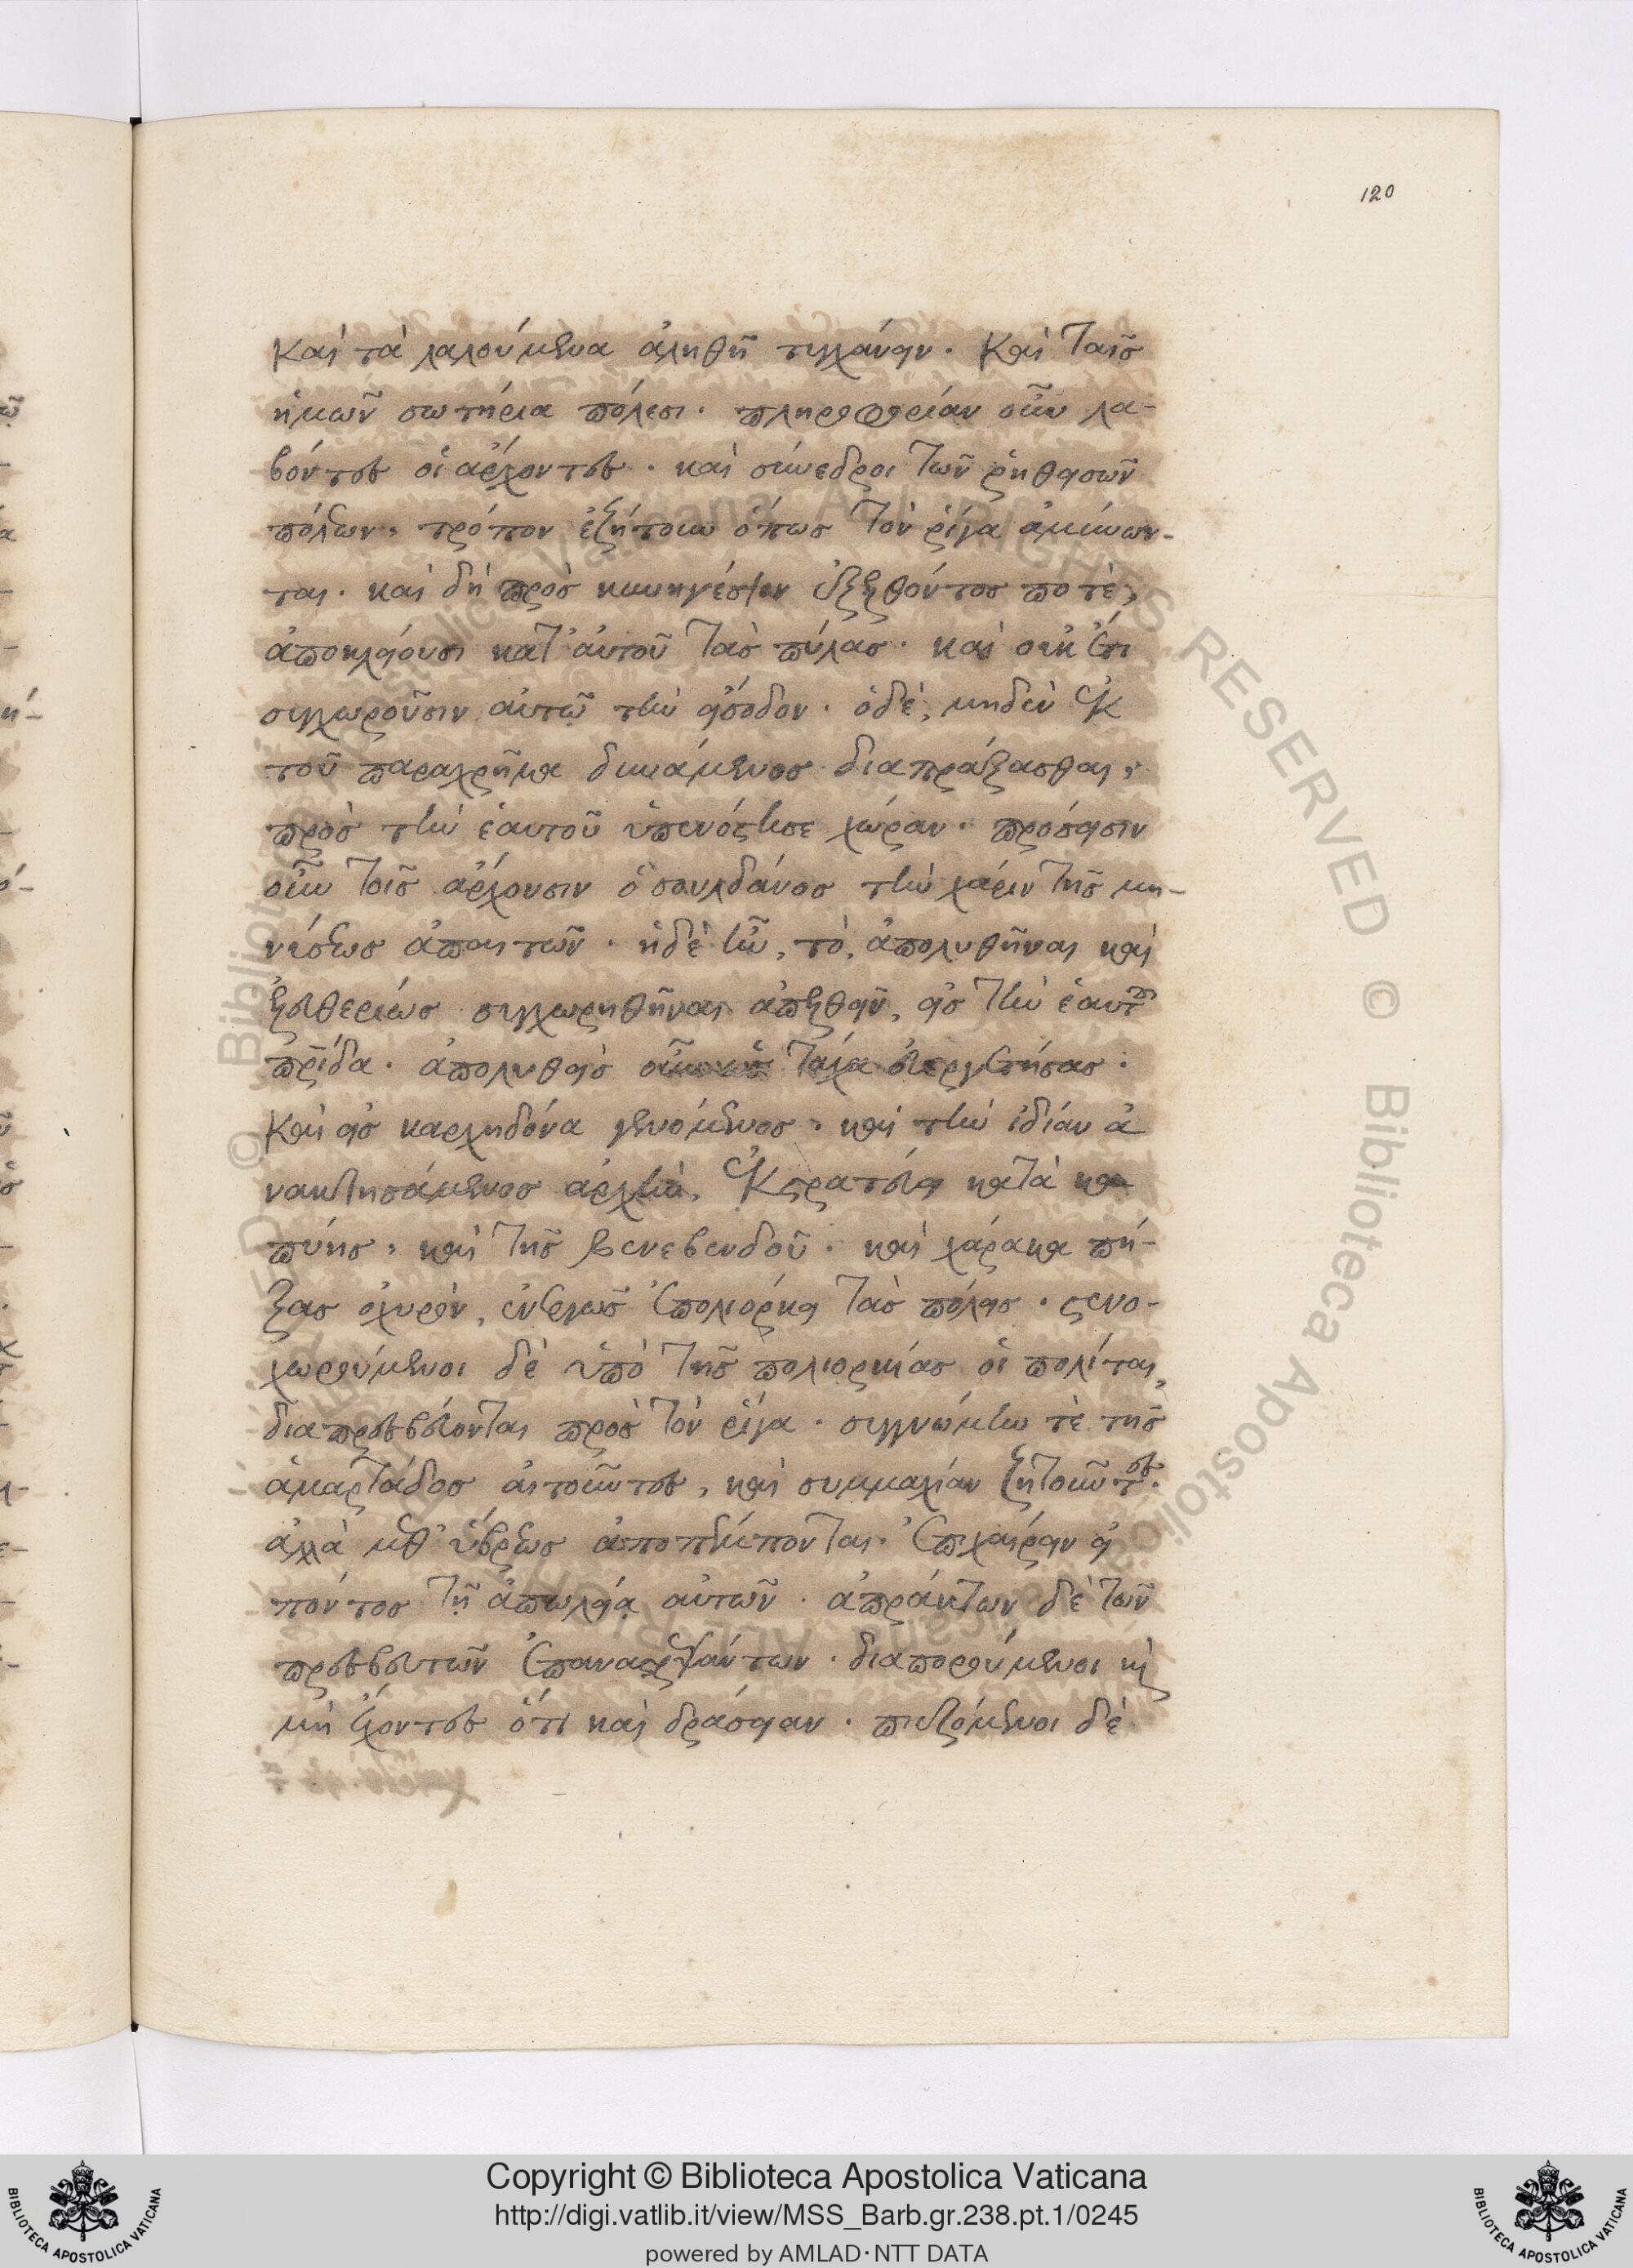 120
καὶ τὰ λαλούμενα ἀληθῆ τυγχάνειν. καὶ ταῖς
ἡμῶν σωτήρια πόλεσι. πληροφορίαν οὖν λα-
βόντες οἱ ἄρχοντες. καὶ σύνεδροι τῶν ῥηθεισῶν
πόλεων, τρόπον ἐζήτουν ὅπως τὸν ῥῆγα ἀμύνων-
ται. καὶ δὴ πρὸς κυνηγέσιον ἐξελθόντος ποτὲ,
ἀποκλείουσι κατ' αὐτοῦ τὰς πύλας. καὶ οὐκ ἔτι
συγχωροῦσιν αὐτῷ τὴν εἴσοδον. ὁ δὲ, μηδὲν ἐκ
τοῦ παραχρῆμα δυνάμενος διαπράξασθαι,
πρὸς τὴν ἑαυτοῦ ὑπενόστησε χώραν. πρόσεισιν
οὖν τοῖς ἄρχουσιν ὁ σουλδάνος τὴν χάριν τῆς μη-
νύσεως ἀπαιτῶν. ἡ δὲ ἦν, τὸ, ἀπολυθῆναι καὶ
ἐλευθερίως συγχωρηθῆναι ἀπελθεῖν, εἰς τὴν ἑαυτοῦ
πρίδα. ἀπολυθεὶς οὖν τάχα εὐεργετήσας.
καὶ εἰς καρχηδόνα γενόμενος, καὶ τὴν ἰδίαν ἀ
νακτησάμενος ἀρχὴν, ἐκστρατεύει κατὰ κα
πύης, καὶ τῆς βενεβενδοῦ. καὶ χάρακα πή-
ξας ὀχυρὸν, ἐνεργῶς ἐπολιόρκει τὰς πόλεις. στενο-
χωρούμενοι δὲ ὑπὸ τῆς πολιορκίας οἱ πολίται,
διαπρεσβεύονται πρὸς τὸν ῥῆγα. συγγνώμην τὲ τῆς
ἁμαρτάδος αἰτοῦντες, καὶ συμμαχίαν ζητοῦντες.
ἀλλὰ μεθ' ὕβρεως ἀποπέμπονται. ἐπιχαίρειν εἰ
πόντος τῇ ἀπωλείᾳ αὐτῶν. ἀπράκτων δὲ τῶν
πρεσβευτῶν ἐπανακαμψάντων. διαπορούμενοι καὶ
μὴ ἔχοντες ὅτι καὶ δράσειαν. πιεζόμενοι δὲ
Copyright © Biblioteca Apostolica Vaticana
http://digi.vatlib.it/view/MSS_Barb.gr.238.pt.1/0245
powered by AMLAD·NTT DATA
BIBLIOTECA APOSTOLICA VATICANA
BIBLIOTECA APOSTOLICA VATICANA